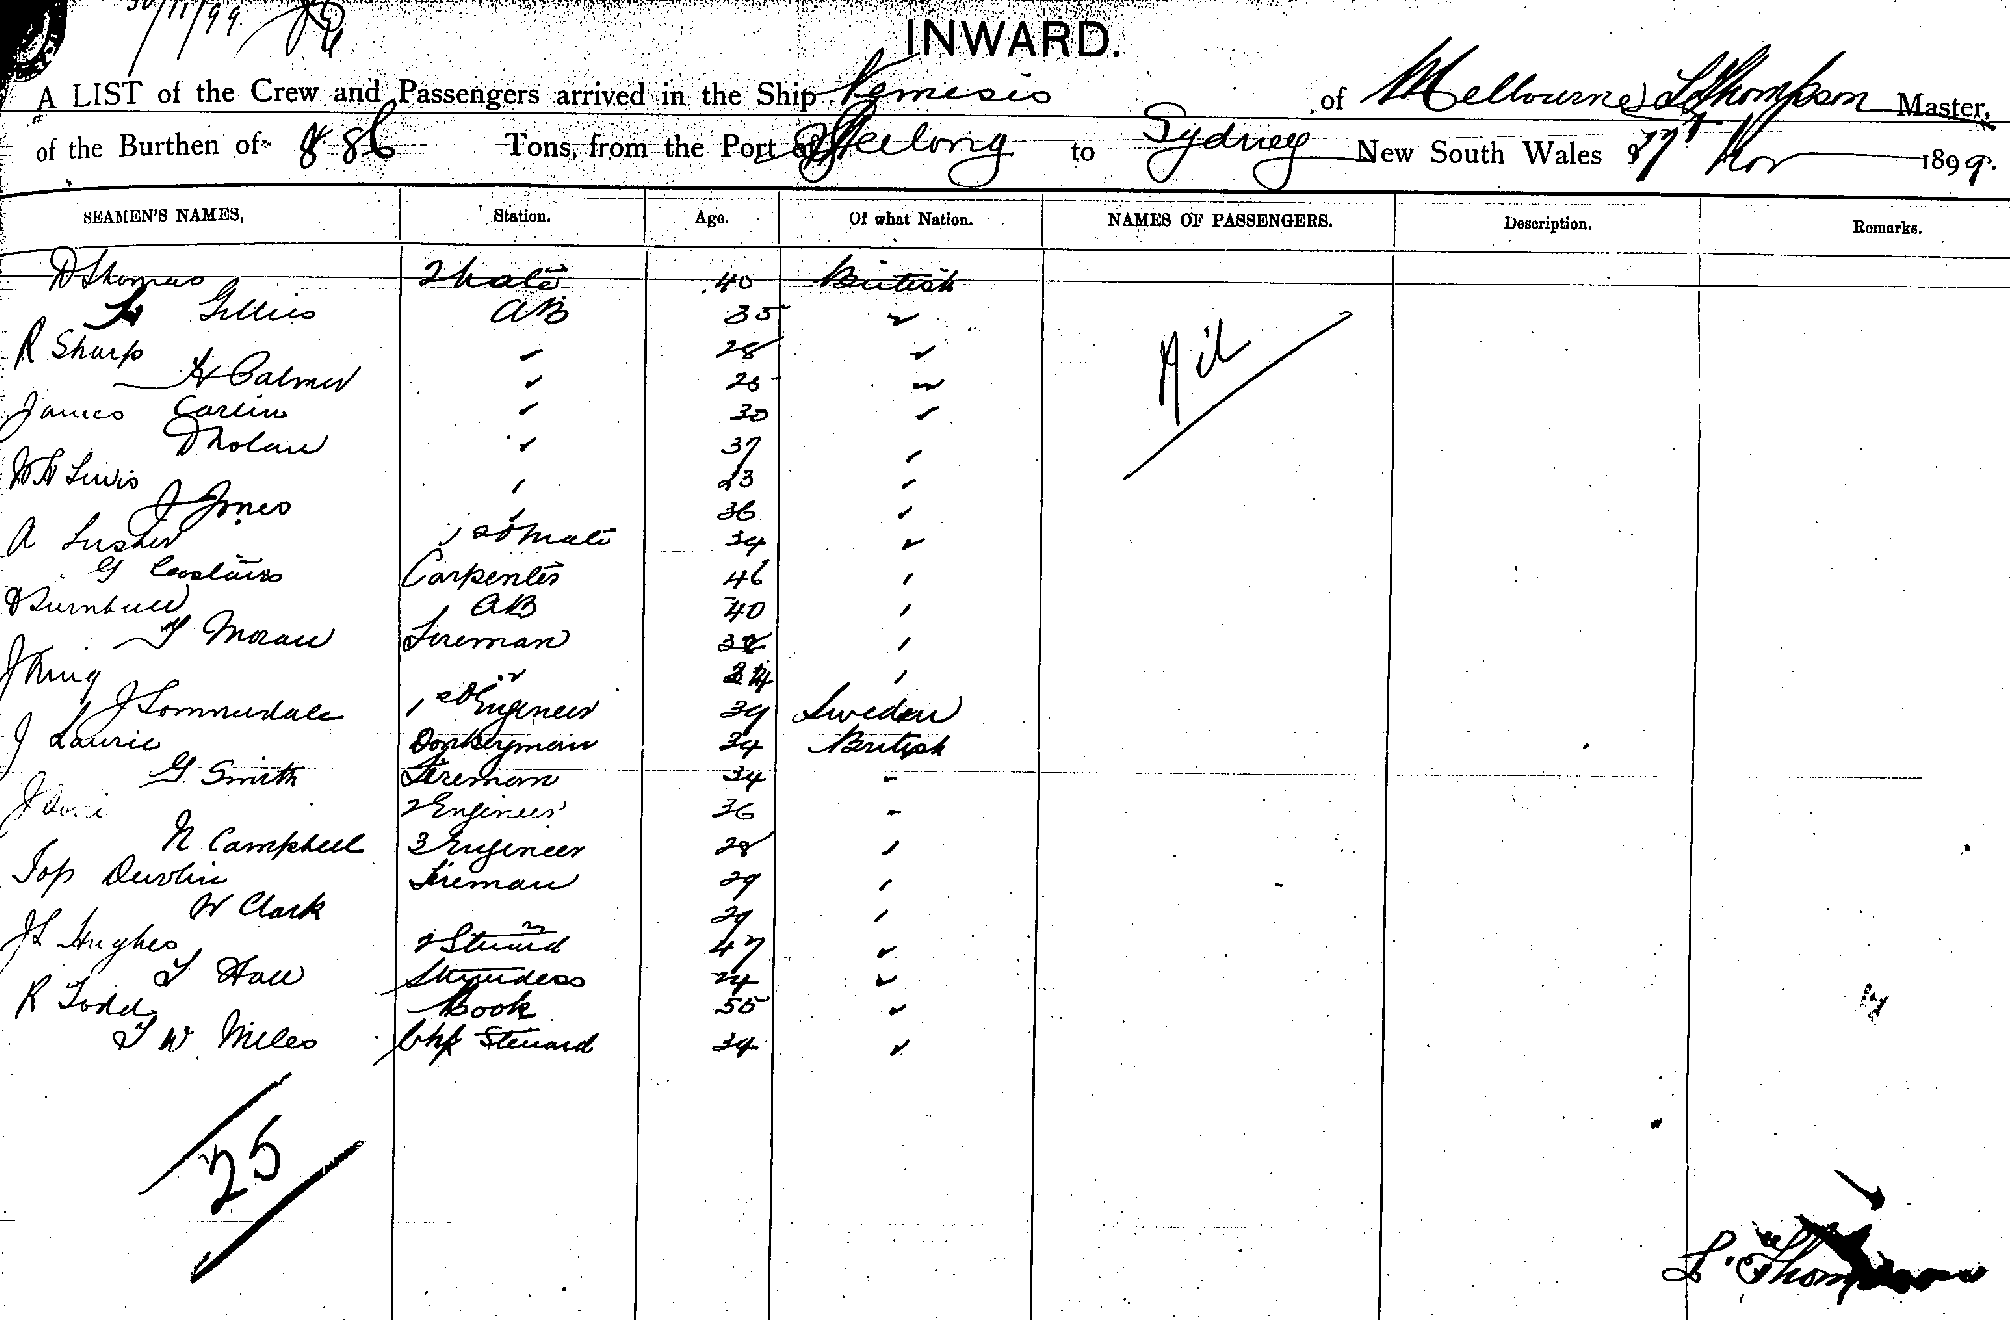 30/11/99
INWARD.
A LIST of the Crew and Passengers arrived in the Ship Nemesis of Melbourne L Thompson Master,
of the Burthen of 886 Tons, from the Port of Geelong to Sydney New South Wales 27th Nov 1899.
SEAMEN'S NAMES, Station. Age. Of what Nation. NAMES OF PASSENGERS. Description. Remarks.
D Thomas 2 Mate 40 British
Gillies AB 35 "
R Sharp " 28 "
H Palmer " 25 "
James Carlin " 30 "
D Nolan " 37 "
W H Lewis " 23 "
J Jones " 36 "
A Lusher 1st Mate 34 "
G Carpenter 46 "
Turnbull AB 40 "
Moran Fireman "
J King " "
J Sommerdale 1st Engineer 39 Sweden
J Laurie Donkeyman 34 British
G Smith Fireman 34 "
J 2 Engineer 36 "
N Campbell 3 Engineer 28 "
Jos Devlin Fireman 29 "
W Clark " 29 "
J L Hughes 2 Steward 47 "
T Hall Stewardess 24 "
R Todd Cook 55 "
T W Miles Chf Steward 34 "
Nil
25
L. Thompson